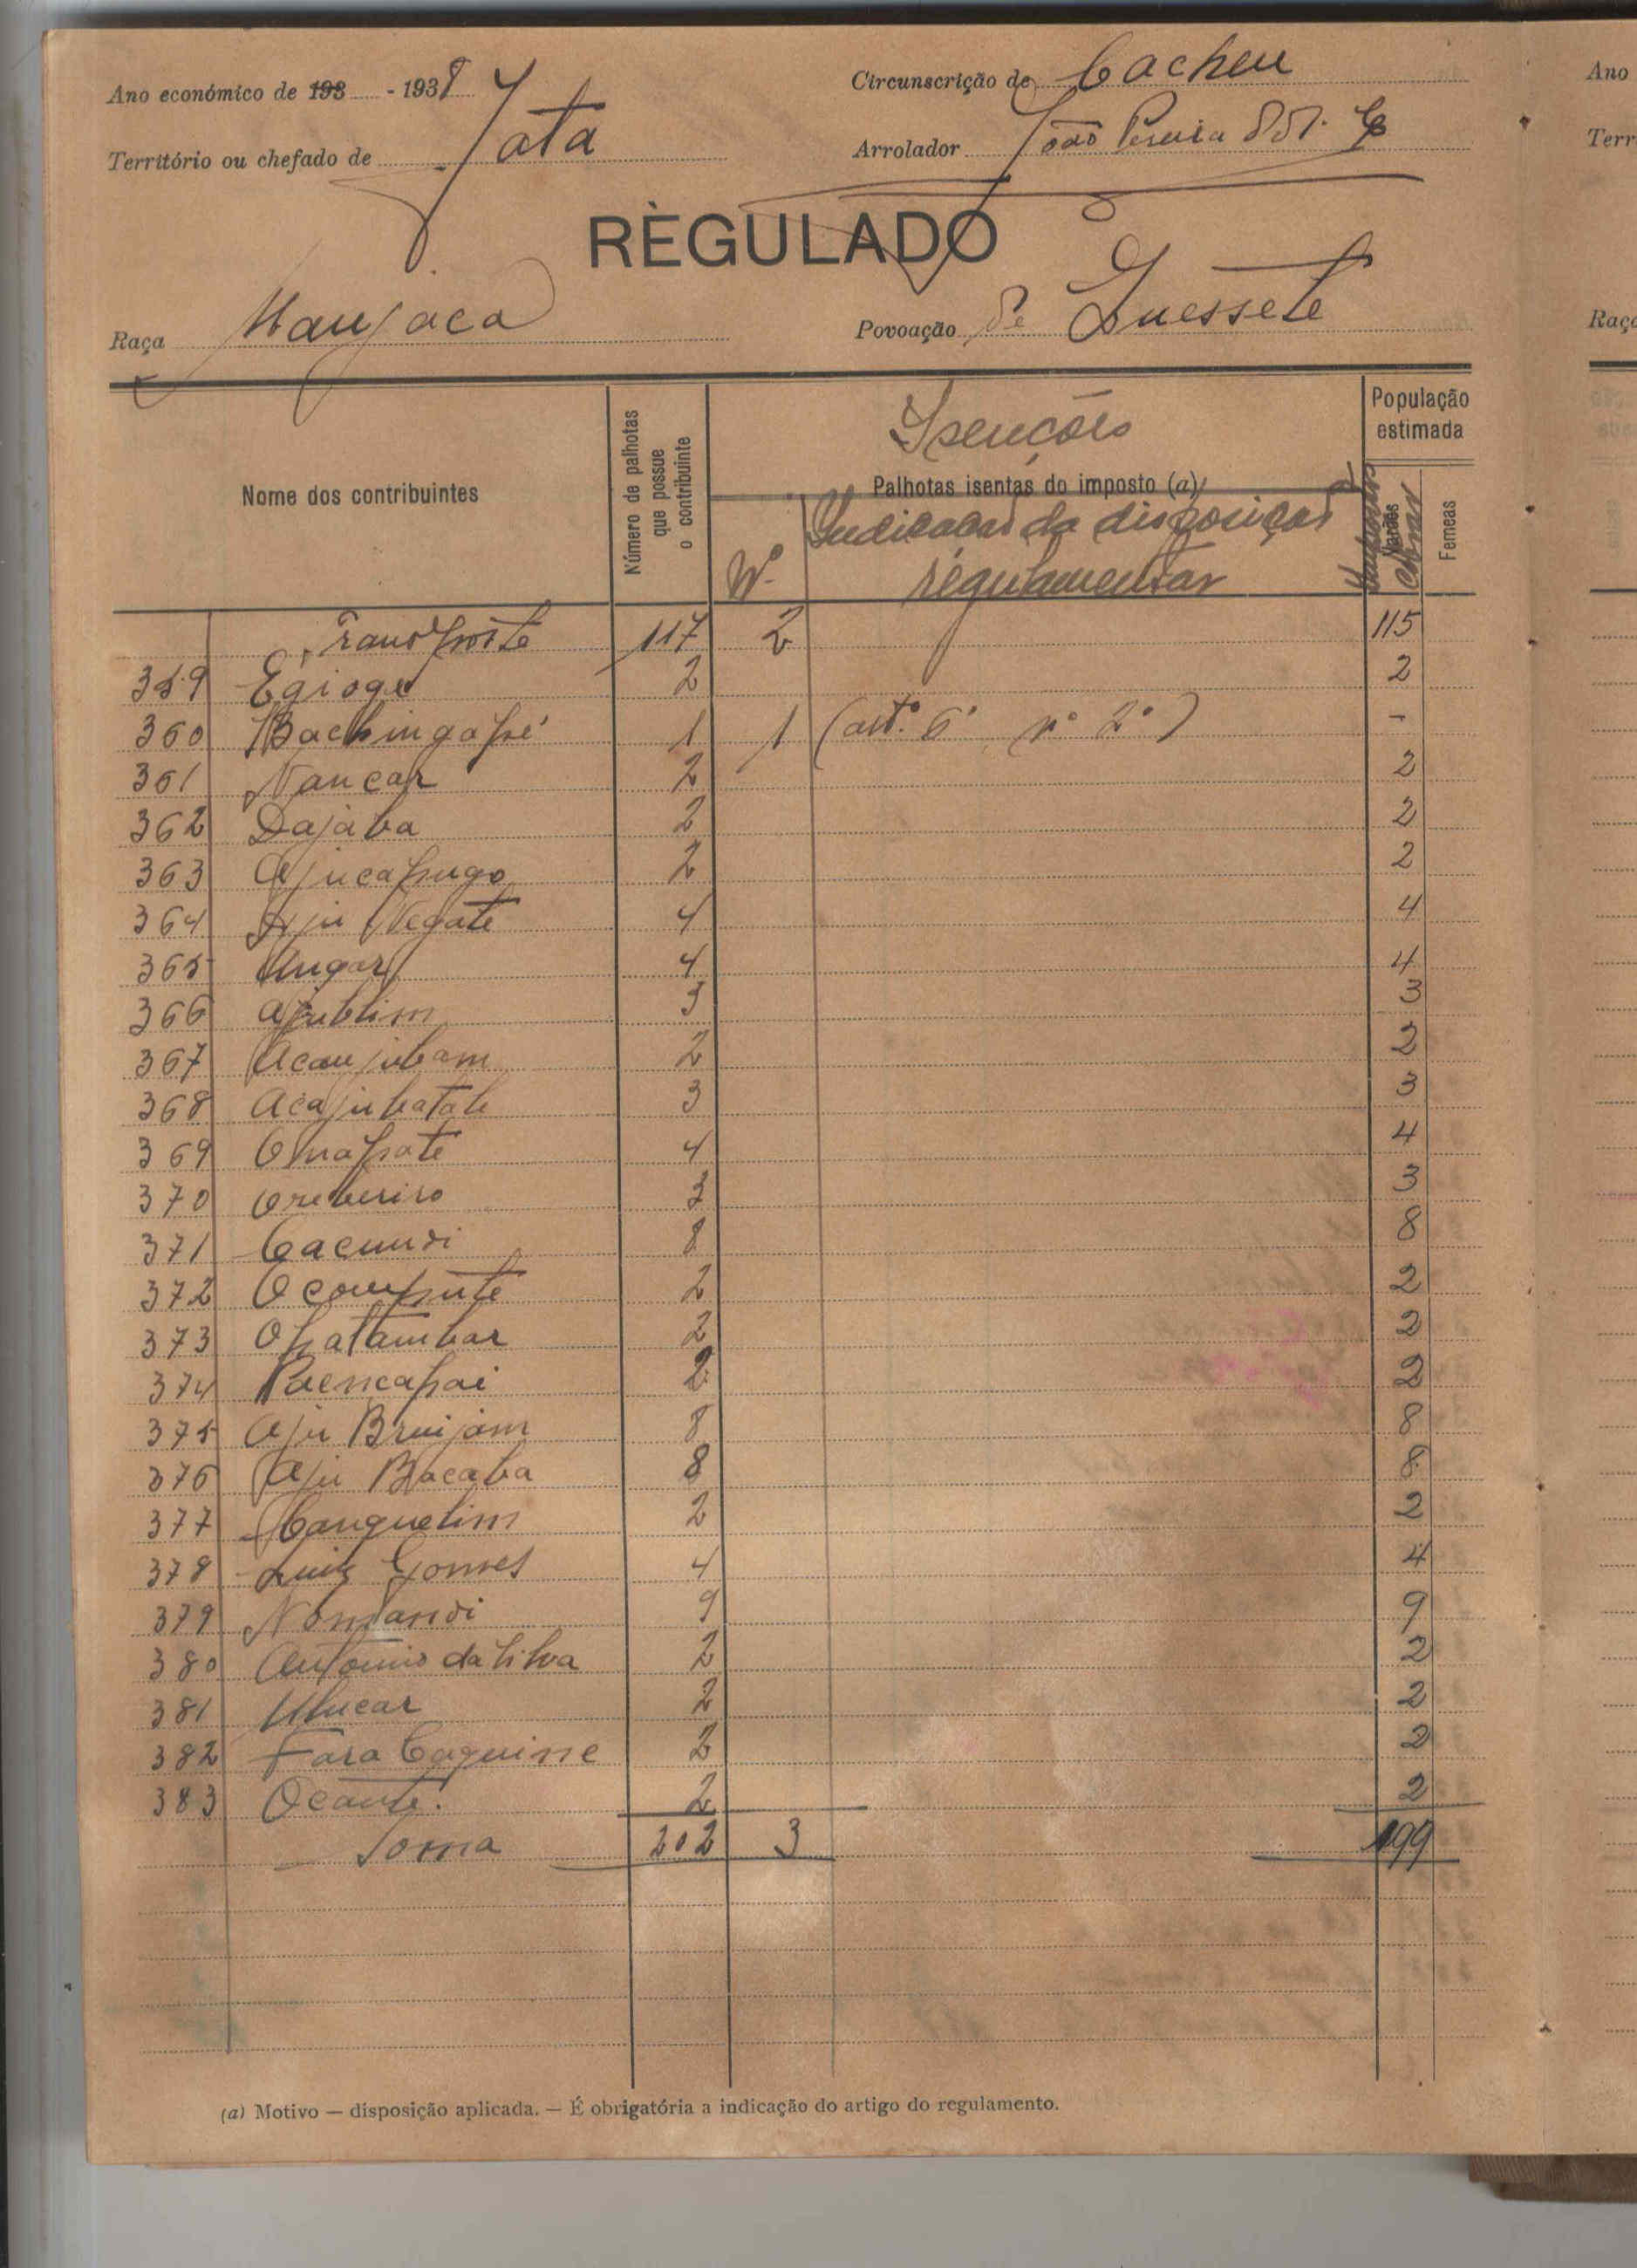 Ano económico de 193 - 1938
Circunscrição de Cacheu
Território ou chefado de Jata
Arrolador João Pereira
REGULADO
Raça Manjaca
Povoação de Quessete
Nome dos contribuintes
Número de palhotas que possue o contribuinte
Isenções
Palhotas isentas do imposto (a)
Nº
Indicação da disposição regulamentar
População estimada
Varões
Femeas
Transporte 117 2 115
359 Egioge 2 2
360 Bachingapé 1 1 (artº. 6º, nº 2º) -
361 Nancar 2 2
362 Dajaba 2 2
363 Ajucapugo 2 2
364 Aju Negate 4 4
365 Ungar 4 4
366 Ajublim 3 3
367 Acanjubam 2 2
368 Acajubatab 3 3
369 Onapate 4 4
370 3 3
371 Cacundi 8 8
372 Ocompute 2 2
373 Opatambar 2 2
374 Paencapai 2 2
375 Aju Bruijam 8 8
376 Aju Bacaba 8 8
377 Canquelim 2 2
378 Luiz Gomes 4 4
379 Nomandi 9 9
380 Antonio da Silva 2 2
381 Ulucar 2 2
382 Fara Caquine 2 2
383 Ocante. 2 2
Soma 202 3 199
(a) Motivo — disposição aplicada. — É obrigatória a indicação do artigo do regulamento.
Ano
Terr
Raç